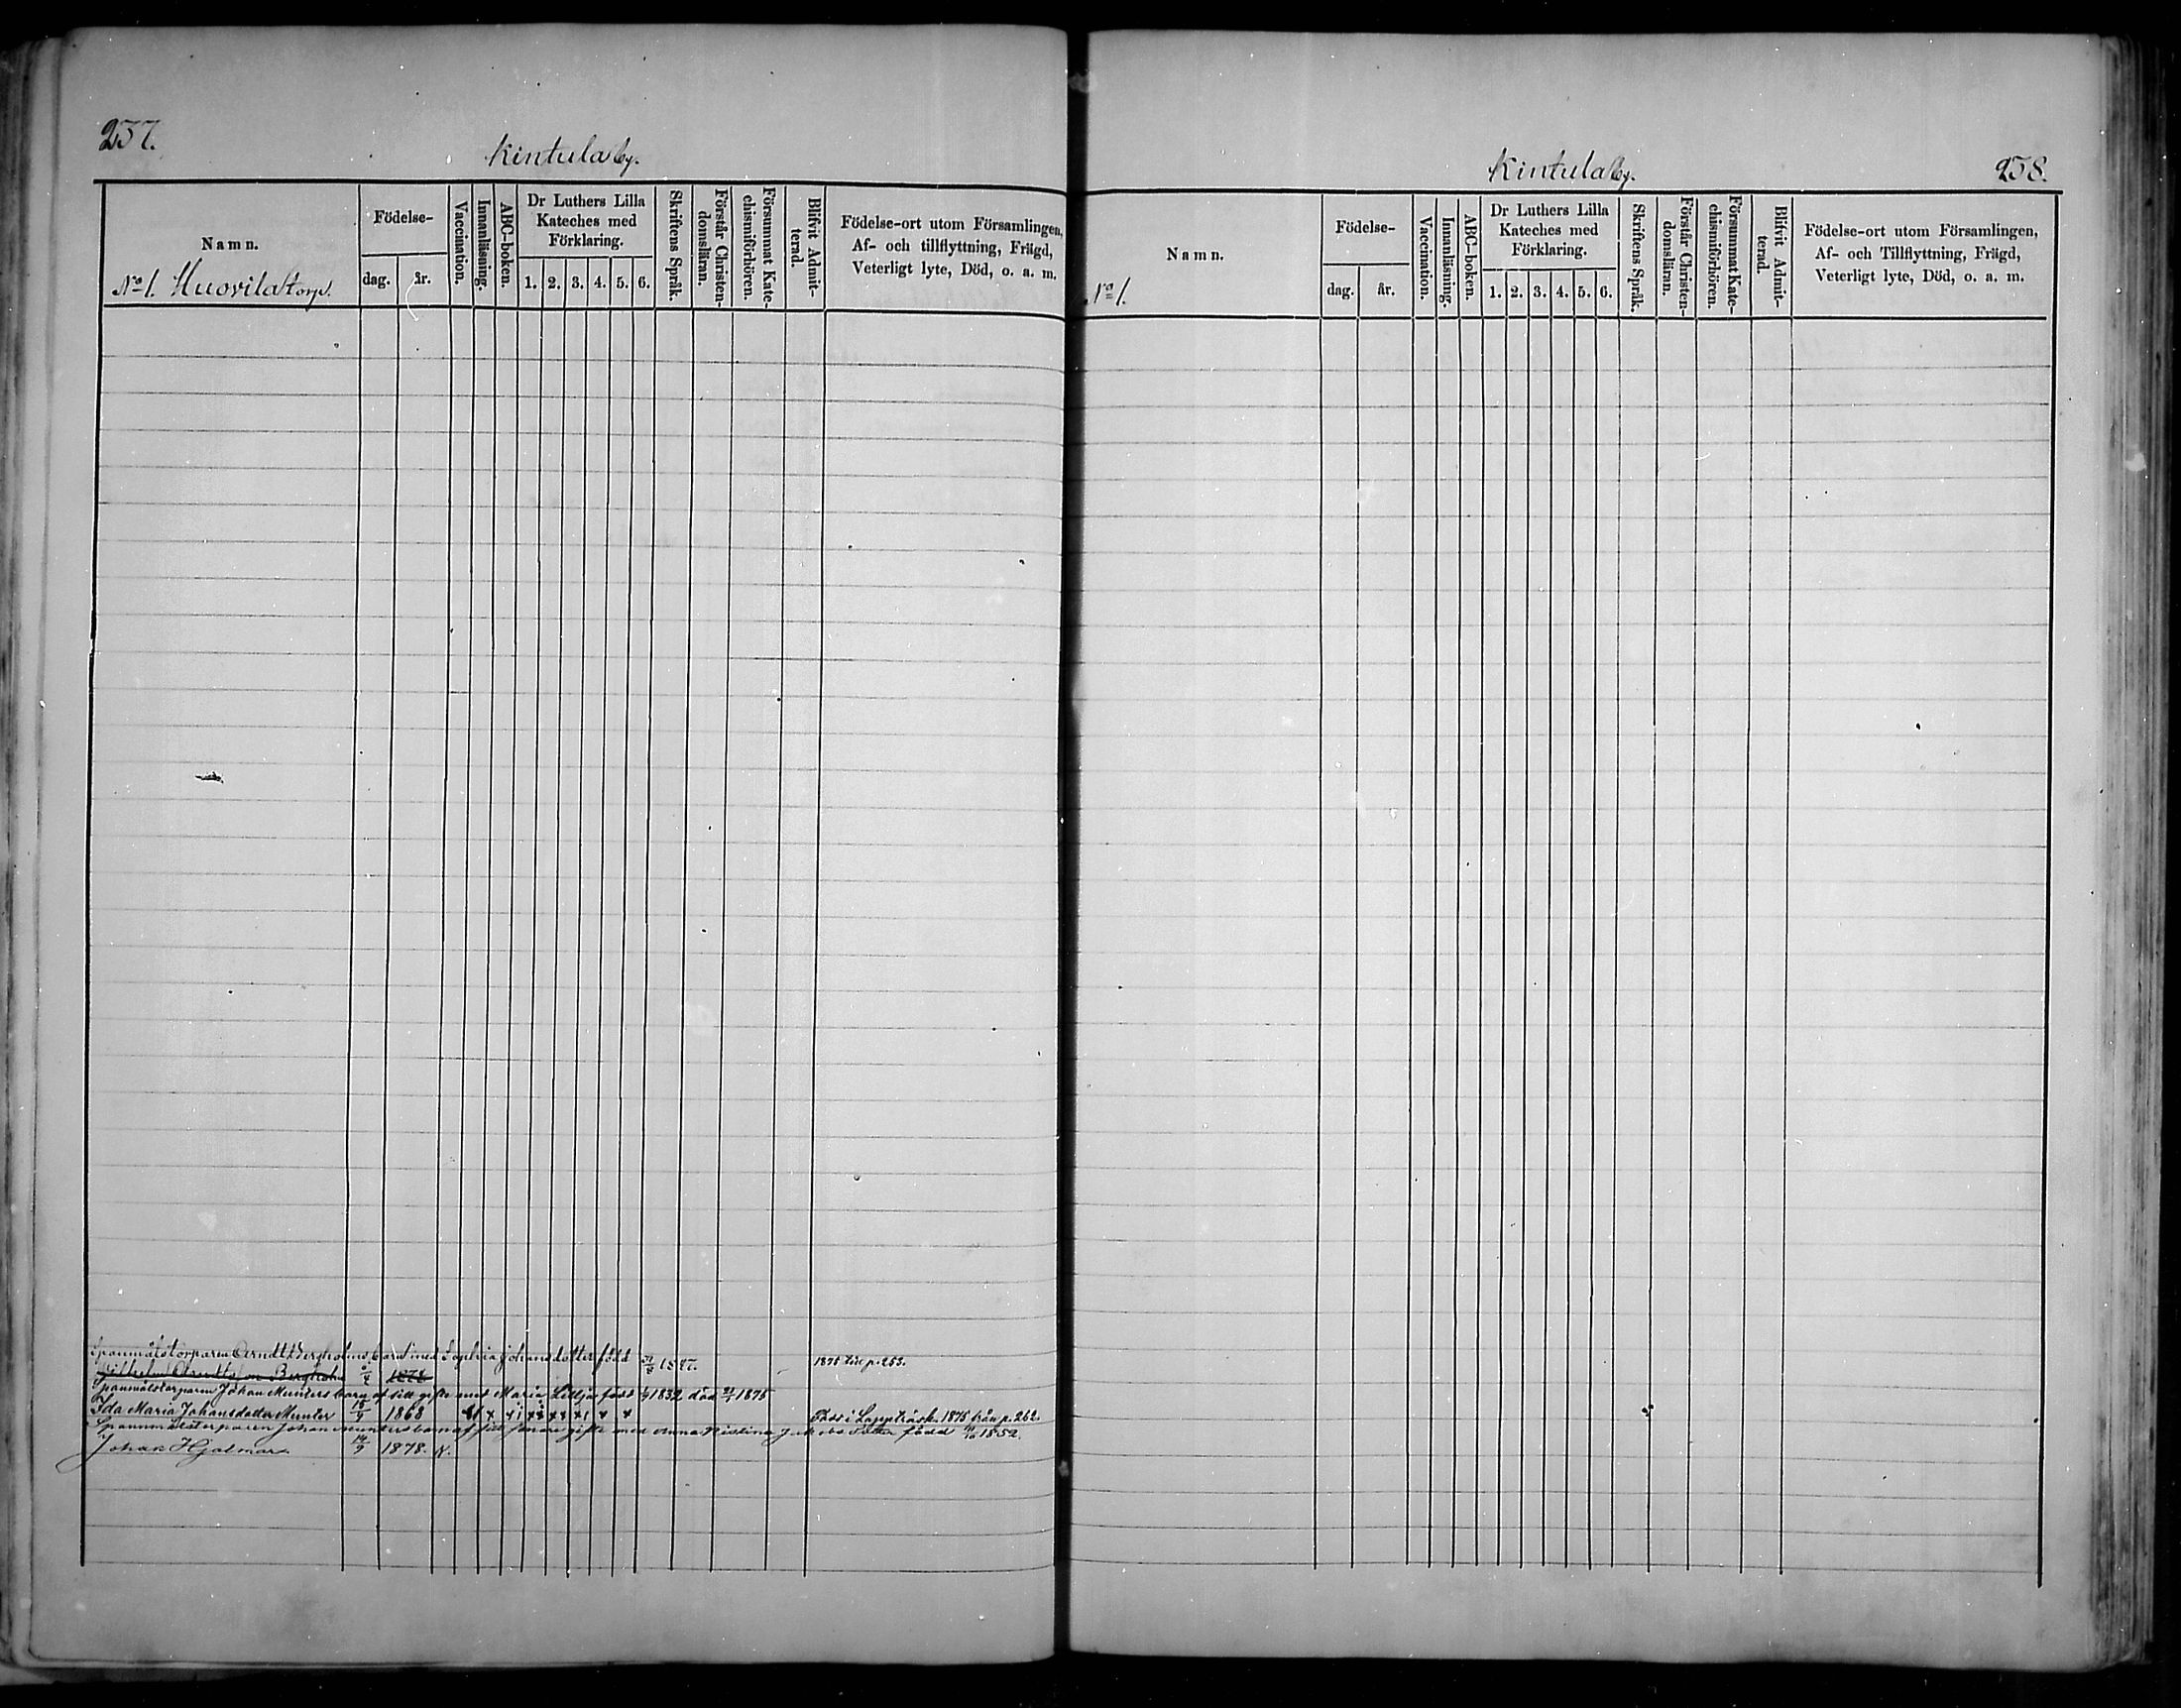 237.
Kintula by.
Namn.
No 1. Huovila torp.
Födelse-
dag. år.
Vaccination.
Innanläsning.
ABC-boken.
Dr Luthers Lilla
Kateches med
Förklaring.
1. 2. 3. 4. 5. 6.
Skriftens Språk.
Förstår Christen-
domsläran.
Försummat Kate-
chismiförhören.
Blifvit Admit-
terad.
Födelse-ort utom Församlingen,
Af- och tillflyttning, Frägd,
Veterligt lyte, Död, o. a. m.
Spanmålstorparen Arndt Bergholms barn med Sophia Johansdotter född 1827. 1875 till p. 253.
Wilhelm Bergholm 1871
Spanmålstorparen Johan Munters barn af sitt gifte med Maria Lillja född 1832 död 1875
Ida Maria Johansdotter Munter 15/9 1868 Född i Lappträsk. 1875 från p. 262.
Spanmålstorparen Johan Munters barn af sitt senare gifte med Anna Kristina Jakobsdotter född 1852.
Johan Hjalmar 14/9 1878. v.
Kintula by.
238.
Namn.
No 1.
Födelse-
dag. år.
Vaccination.
Innanläsning.
ABC-boken.
Dr Luthers Lilla
Kateches med
Förklaring.
1. 2. 3. 4. 5. 6.
Skriftens Språk.
Förstår Christen-
domsläran.
Försummat Kate-
chismiförhören.
Blifvit Admit-
terad.
Födelse-ort utom Församlingen,
Af- och Tillflyttning, Frägd,
Veterligt lyte, Död, o. a. m.